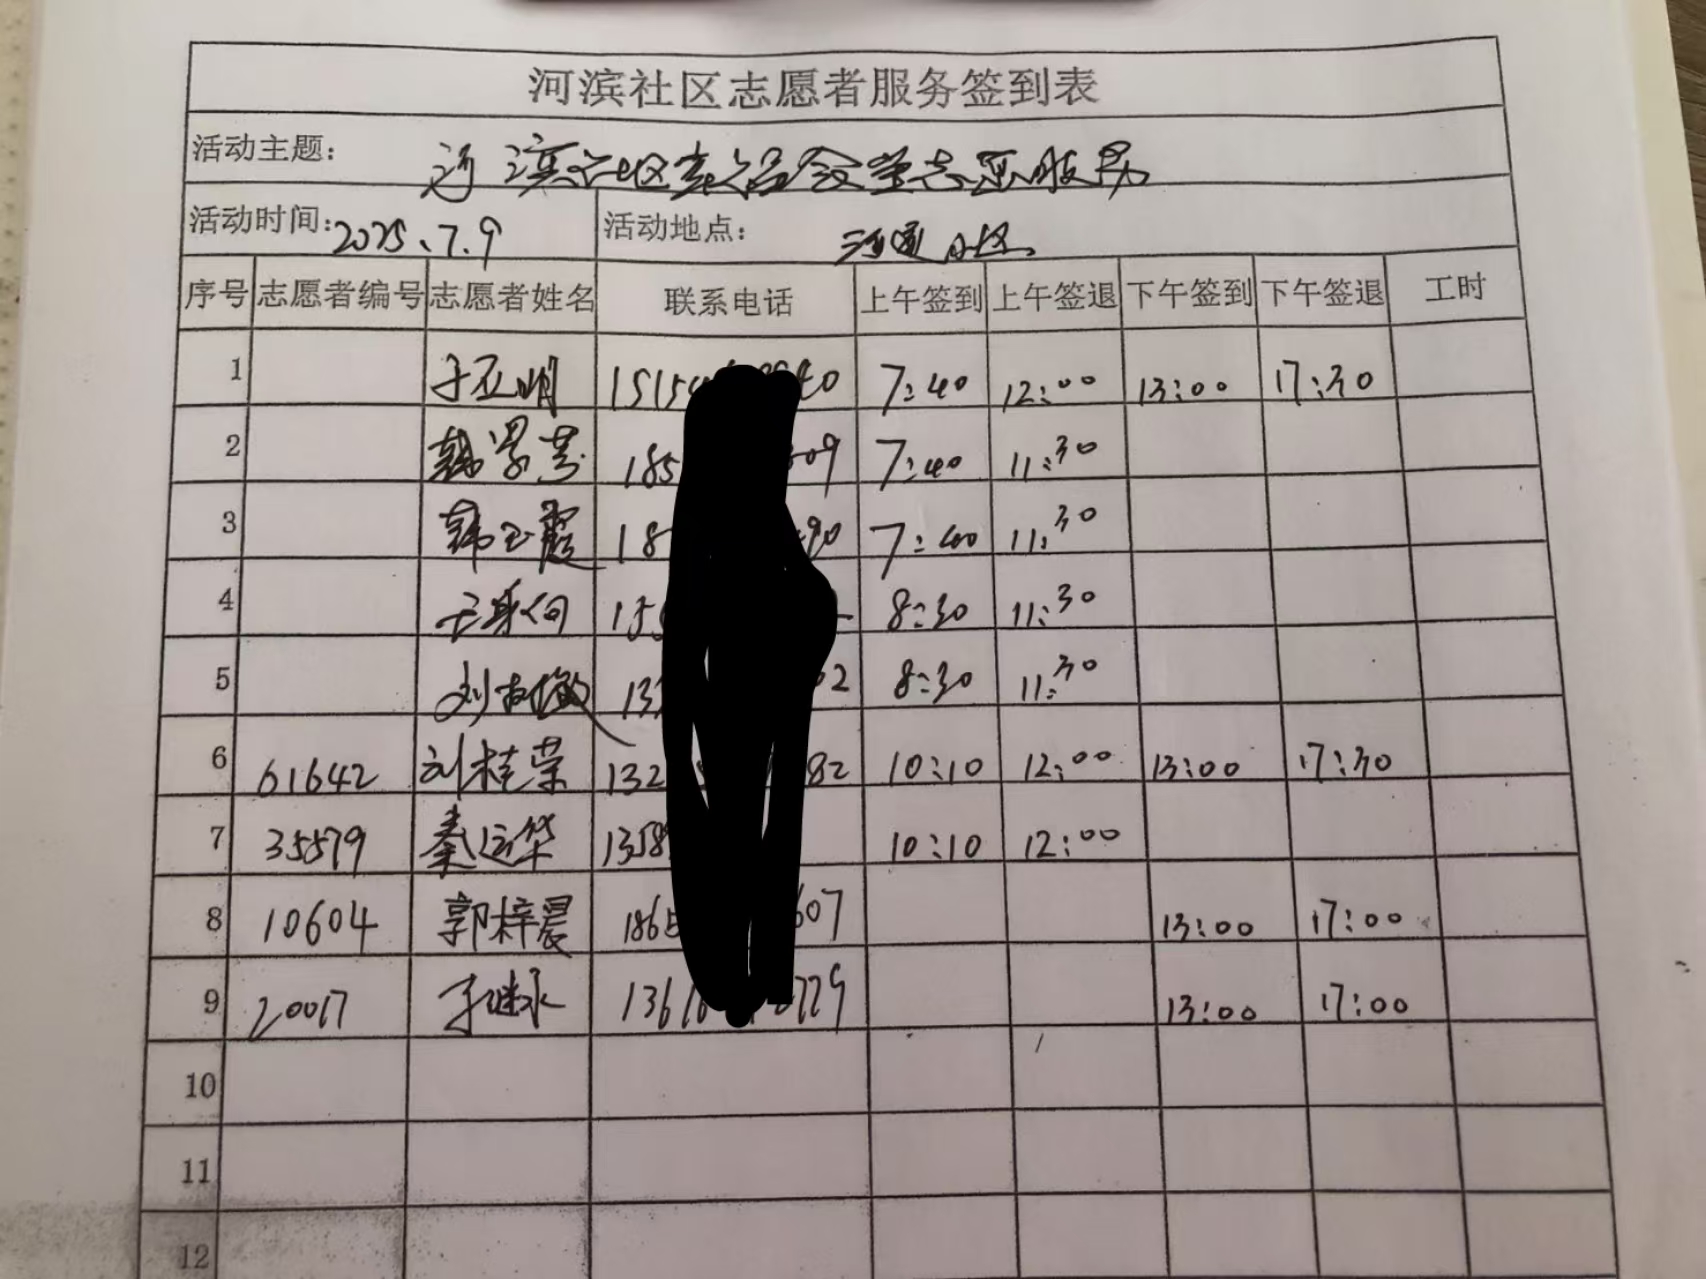 河滨社区志愿者服务签到表
活动主题: 河滨社区 志愿服务
活动时间: 2025、7.9 活动地点: 河 小区
序号 志愿者编号 志愿者姓名 联系电话 上午签到 上午签退 下午签到 下午签退 工时
1 于亚明 1515 40 7:40 12:00 13:00 17:30
2 韩 芳 185 609 7:40 11:30
3 韩玉霞 18 90 7:40 11:30
4 15 8:30 11:30
5 刘 敏 13 02 8:30 11:30
6 61642 刘桂荣 132 82 10:10 12:00 13:00 17:30
7 35579 秦运华 1358 10:10 12:00
8 10604 郭梓晨 1865 607 13:00 17:00
9 20017 于继永 1361 729 13:00 17:00
10
11
12